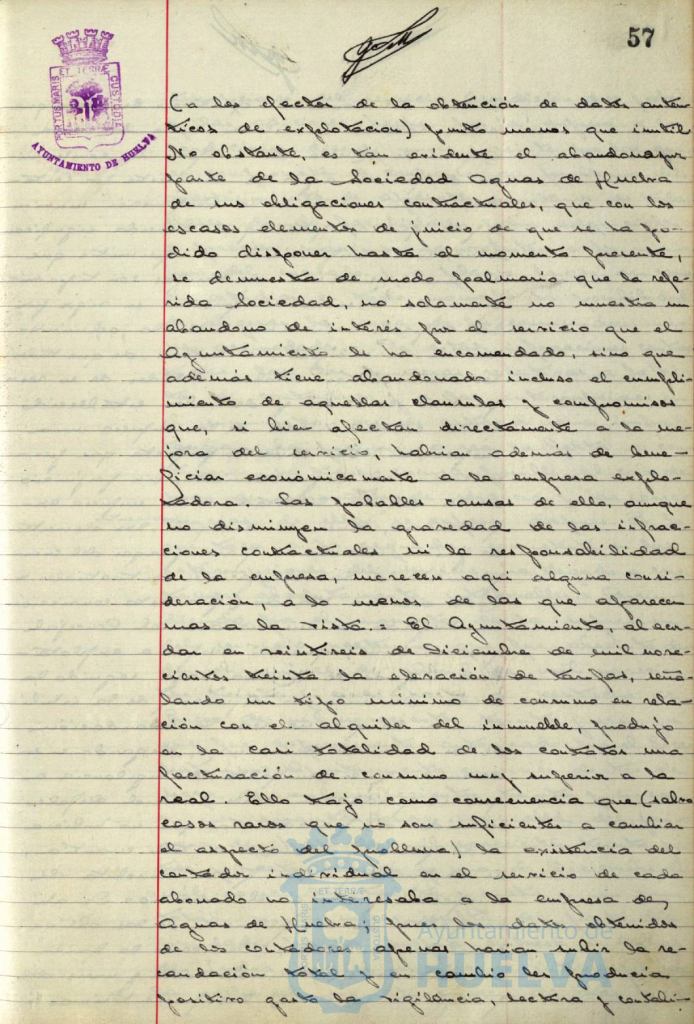 57
PORTUS MARIS ET TERRÆ CUSTODIA
AYUNTAMIENTO DE HUELVA
(a los efectos de la obtención de datos autén-
ticos de explotacion) punto menos que inutil
No obstante, es tan evidente el abandono por
parte de la Sociedad Aguas de Huelva
de sus obligaciones contractuales, que con los
escasos elementos de juicio de que se ha po-
dido disponer hasta el momento presente,
se demuestra de modo palmario que la refe-
rida Sociedad, no solamente no muestra un
abandono de interés por el servicio que el
Ayuntamiento le ha encomendado, sino que
además tiene abandonado incluso el cumpli-
miento de aquellas clausulas y compromisos
que, si bien afectan directamente a la me-
jora del servicio, habrian además de bene-
ficiar económicamente a la empresa explo-
tadora. Las probables causas de ello, aunque
no disminuyen la gravedad de las infrac-
ciones contractuales ni la responsabilidad
de la empresa, merecen aqui alguna consi-
deración, a lo menos de las que aparecen
mas a la vista. = El Ayuntamiento, al acor-
dar en veintiseis de Diciembre de mil nove-
cientos treinta la elevación de tarifas, seña-
lando un tipo minimo de consumo en rela-
ción con el alquiler del inmueble, produjo
en la casi totalidad de los contratos una
facturación de consumo muy superior a la
real. Ello trajo como consecuencia que (salvo
casos raros que no son suficientes a cambiar
el aspecto del problema) la existencia del
contador individual en el servicio de cada
abonado no interesaba a la empresa de
Aguas de Huelva; pues los datos obtenidos
de los contadores apenas harian subir la re-
caudación total y en cambio les producia
positivo gasto la vigilancia, lectura y contabi-
Ayuntamiento de
HUELVA